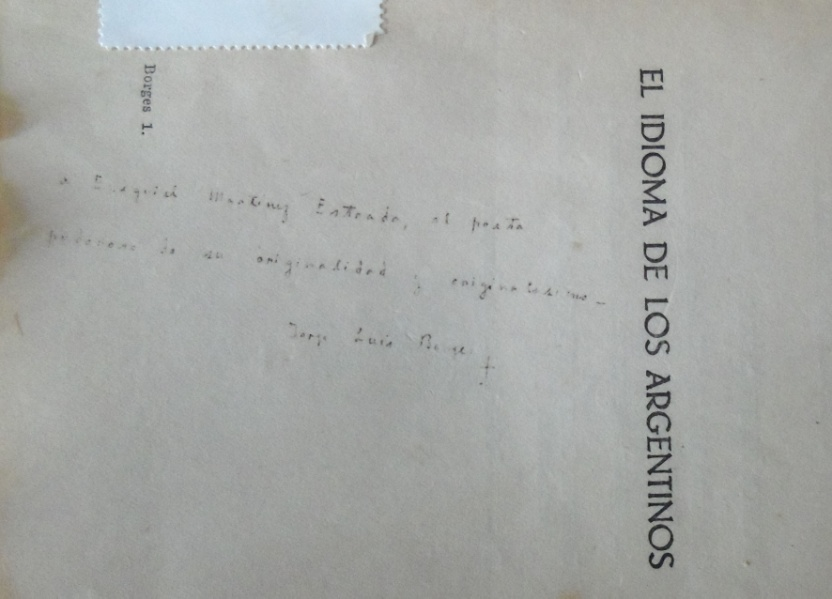 EL IDIOMA DE LOS ARGENTINOS
Borges 1.
a Ezequiel Martínez Estrada, al poeta
de su originalidad y originalísimo—
Jorge Luis Borges